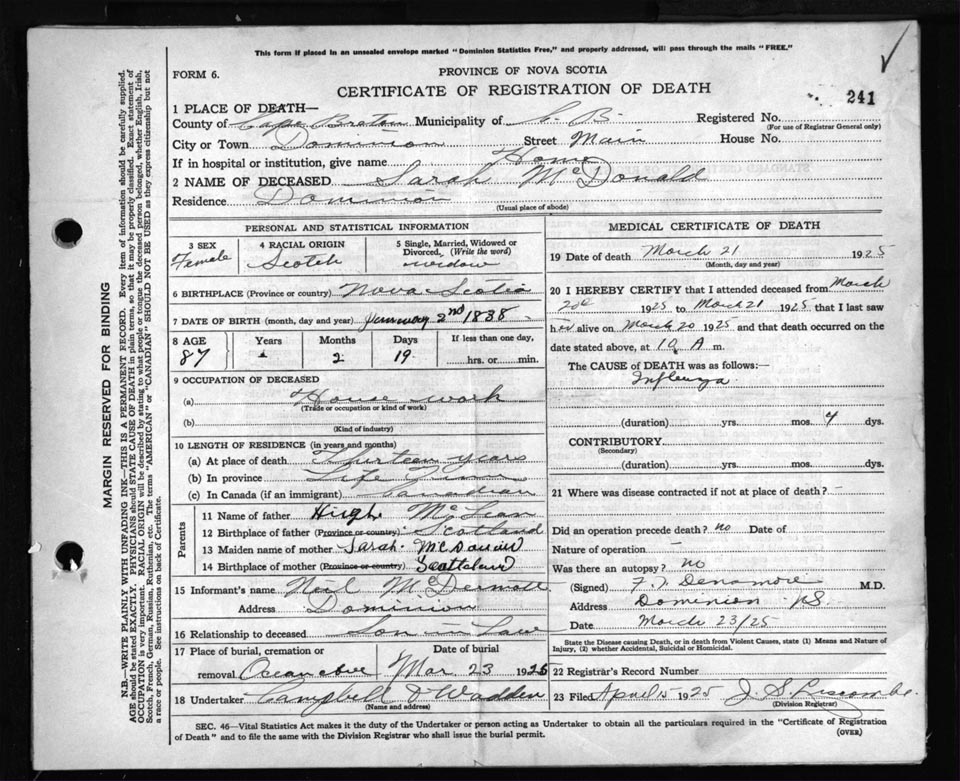 This form if placed in an unsealed envelope marked "Dominion Statistics Free," and properly addressed, will pass through the mails "FREE."
FORM 6.
PROVINCE OF NOVA SCOTIA
CERTIFICATE OF REGISTRATION OF DEATH
241
1 PLACE OF DEATH—
County of Cape Breton Municipality of C. B. Registered No.
(For use of Registrar General only)
City or Town Dominion Street Main House No.
If in hospital or institution, give name Home
2 NAME OF DECEASED Sarah McDonald
Residence Dominion
(Usual place of abode)
PERSONAL AND STATISTICAL INFORMATION
3 SEX Female
4 RACIAL ORIGIN Scotch
5 Single, Married, Widowed or Divorced. (Write the word) widow
6 BIRTHPLACE (Province or country) Nova Scotia
7 DATE OF BIRTH (month, day and year) January 2nd 1838
8 AGE Years Months Days If less than one day,
87 2 19 hrs. or min.
9 OCCUPATION OF DECEASED
(a) House work
(Trade or occupation or kind of work)
(b)
(Kind of industry)
10 LENGTH OF RESIDENCE (in years and months)
(a) At place of death Thirteen years
(b) In province Life Time
(c) In Canada (if an immigrant) Canadian
Parents
11 Name of father Hugh McLean
12 Birthplace of father (Province or country) Scotland
13 Maiden name of mother Sarah
14 Birthplace of mother (Province or country) Scotland
15 Informant's name Neil McDermott
Address Dominion
16 Relationship to deceased Son in Law
17 Place of burial, cremation or Date of burial
removal Mar 23 1925
18 Undertaker Campbell & Wadden
(Name and address)
MEDICAL CERTIFICATE OF DEATH
19 Date of death March 21 1925
(Month, day and year)
20 I HEREBY CERTIFY that I attended deceased from March
1925 to March 21 1925 that I last saw
h alive on March 20 1925 and that death occurred on
date stated above, at 10 A m.
The CAUSE of DEATH was as follows:—
Influenza
(duration) yrs. mos. 4 dys.
CONTRIBUTORY
(Secondary)
(duration) yrs. mos. dys.
21 Where was disease contracted if not at place of death?
Did an operation precede death? no Date of
Nature of operation —
Was there an autopsy? no
(Signed) M.D.
Address Dominion NS
Date March 23/25
State the Disease causing Death, or in death from Violent Causes, state (1) Means and Nature of
Injury, (2) whether Accidental, Suicidal or Homicidal.
22 Registrar's Record Number
23 Filed April 1925 J. S.
(Division Registrar)
SEC. 46—Vital Statistics Act makes it the duty of the Undertaker or person acting as Undertaker to obtain all the particulars required in the "Certificate of Registration
of Death" and to file the same with the Division Registrar who shall issue the burial permit.
(OVER)
MARGIN RESERVED FOR BINDING
N.B.—WRITE PLAINLY WITH UNFADING INK—THIS IS A PERMANENT RECORD. Every item of information should be carefully supplied.
AGE should be stated EXACTLY. PHYSICIANS should STATE CAUSE OF DEATH in plain terms, so that it may be properly classified. Exact statement of
OCCUPATION is very important. RACIAL ORIGIN will be described by stating to what people or tongue the deceased person belonged, whether English, Irish,
Scotch, French, German, Russian, Ruthenian, etc. The terms "AMERICAN" or "CANADIAN" SHOULD NOT BE USED as they express citizenship but not
a race or people. See instructions on back of Certificate.